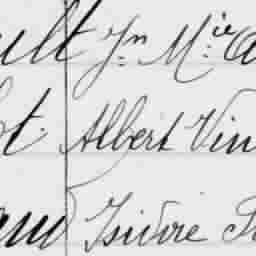 ult Jn Mie A
ot. Albert Vin
and Isidore